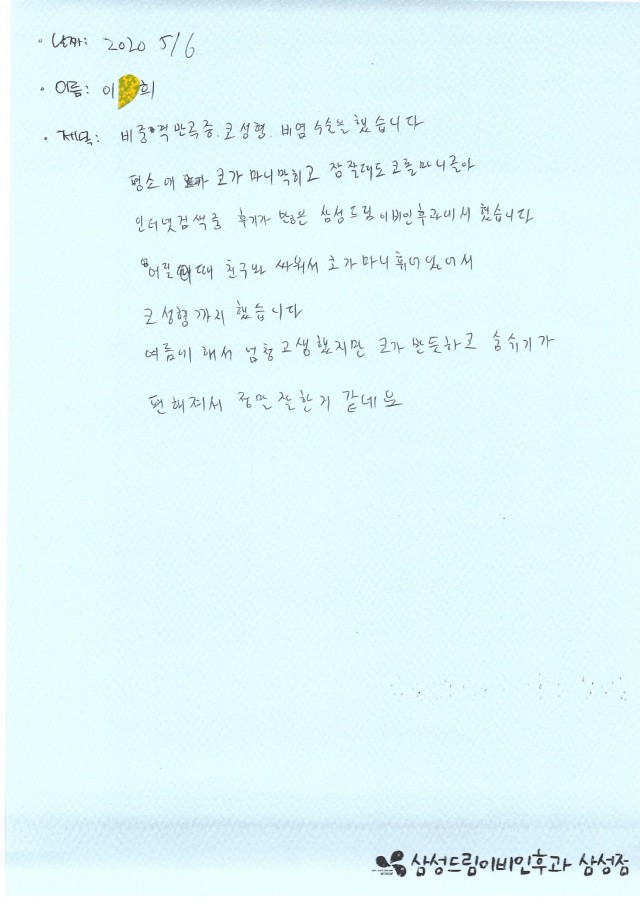 · 날짜: 2020 5/6
· 이름: 이 희
· 제목: 비중격만곡증. 코성형. 비염 수술을 했습니다
평소에 코가 마니막히고 잠잘때도 코를마니골아
인터넷검색중 후기가 많은 삼성드림이비인후과에서 했습니다
어릴때 친구와 싸워서 코가 마니 휘어있어서
코성형까지 했습니다
여름에 해서 넘 고생했지만 코가 반듯하고 숨쉬기가
편해져서 정말 잘한거 같네요
삼성드림이비인후과 삼성점